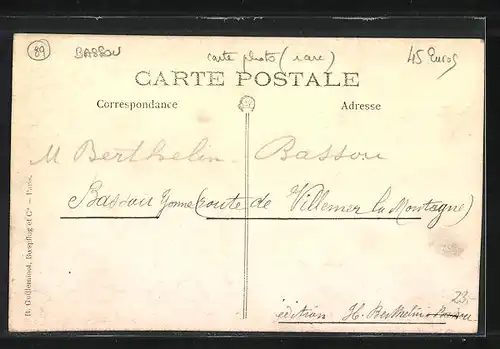 89 BASSOU carte photo (rare) 45 Euros
CARTE POSTALE
Correspondance Adresse
M Berthelin Bassou
Bassou Yonne (route de Villemer la Montagne)
23,-
édition H. Berthelin Bassou
R. Guilleminot, Bœspflug et Cie — Paris.